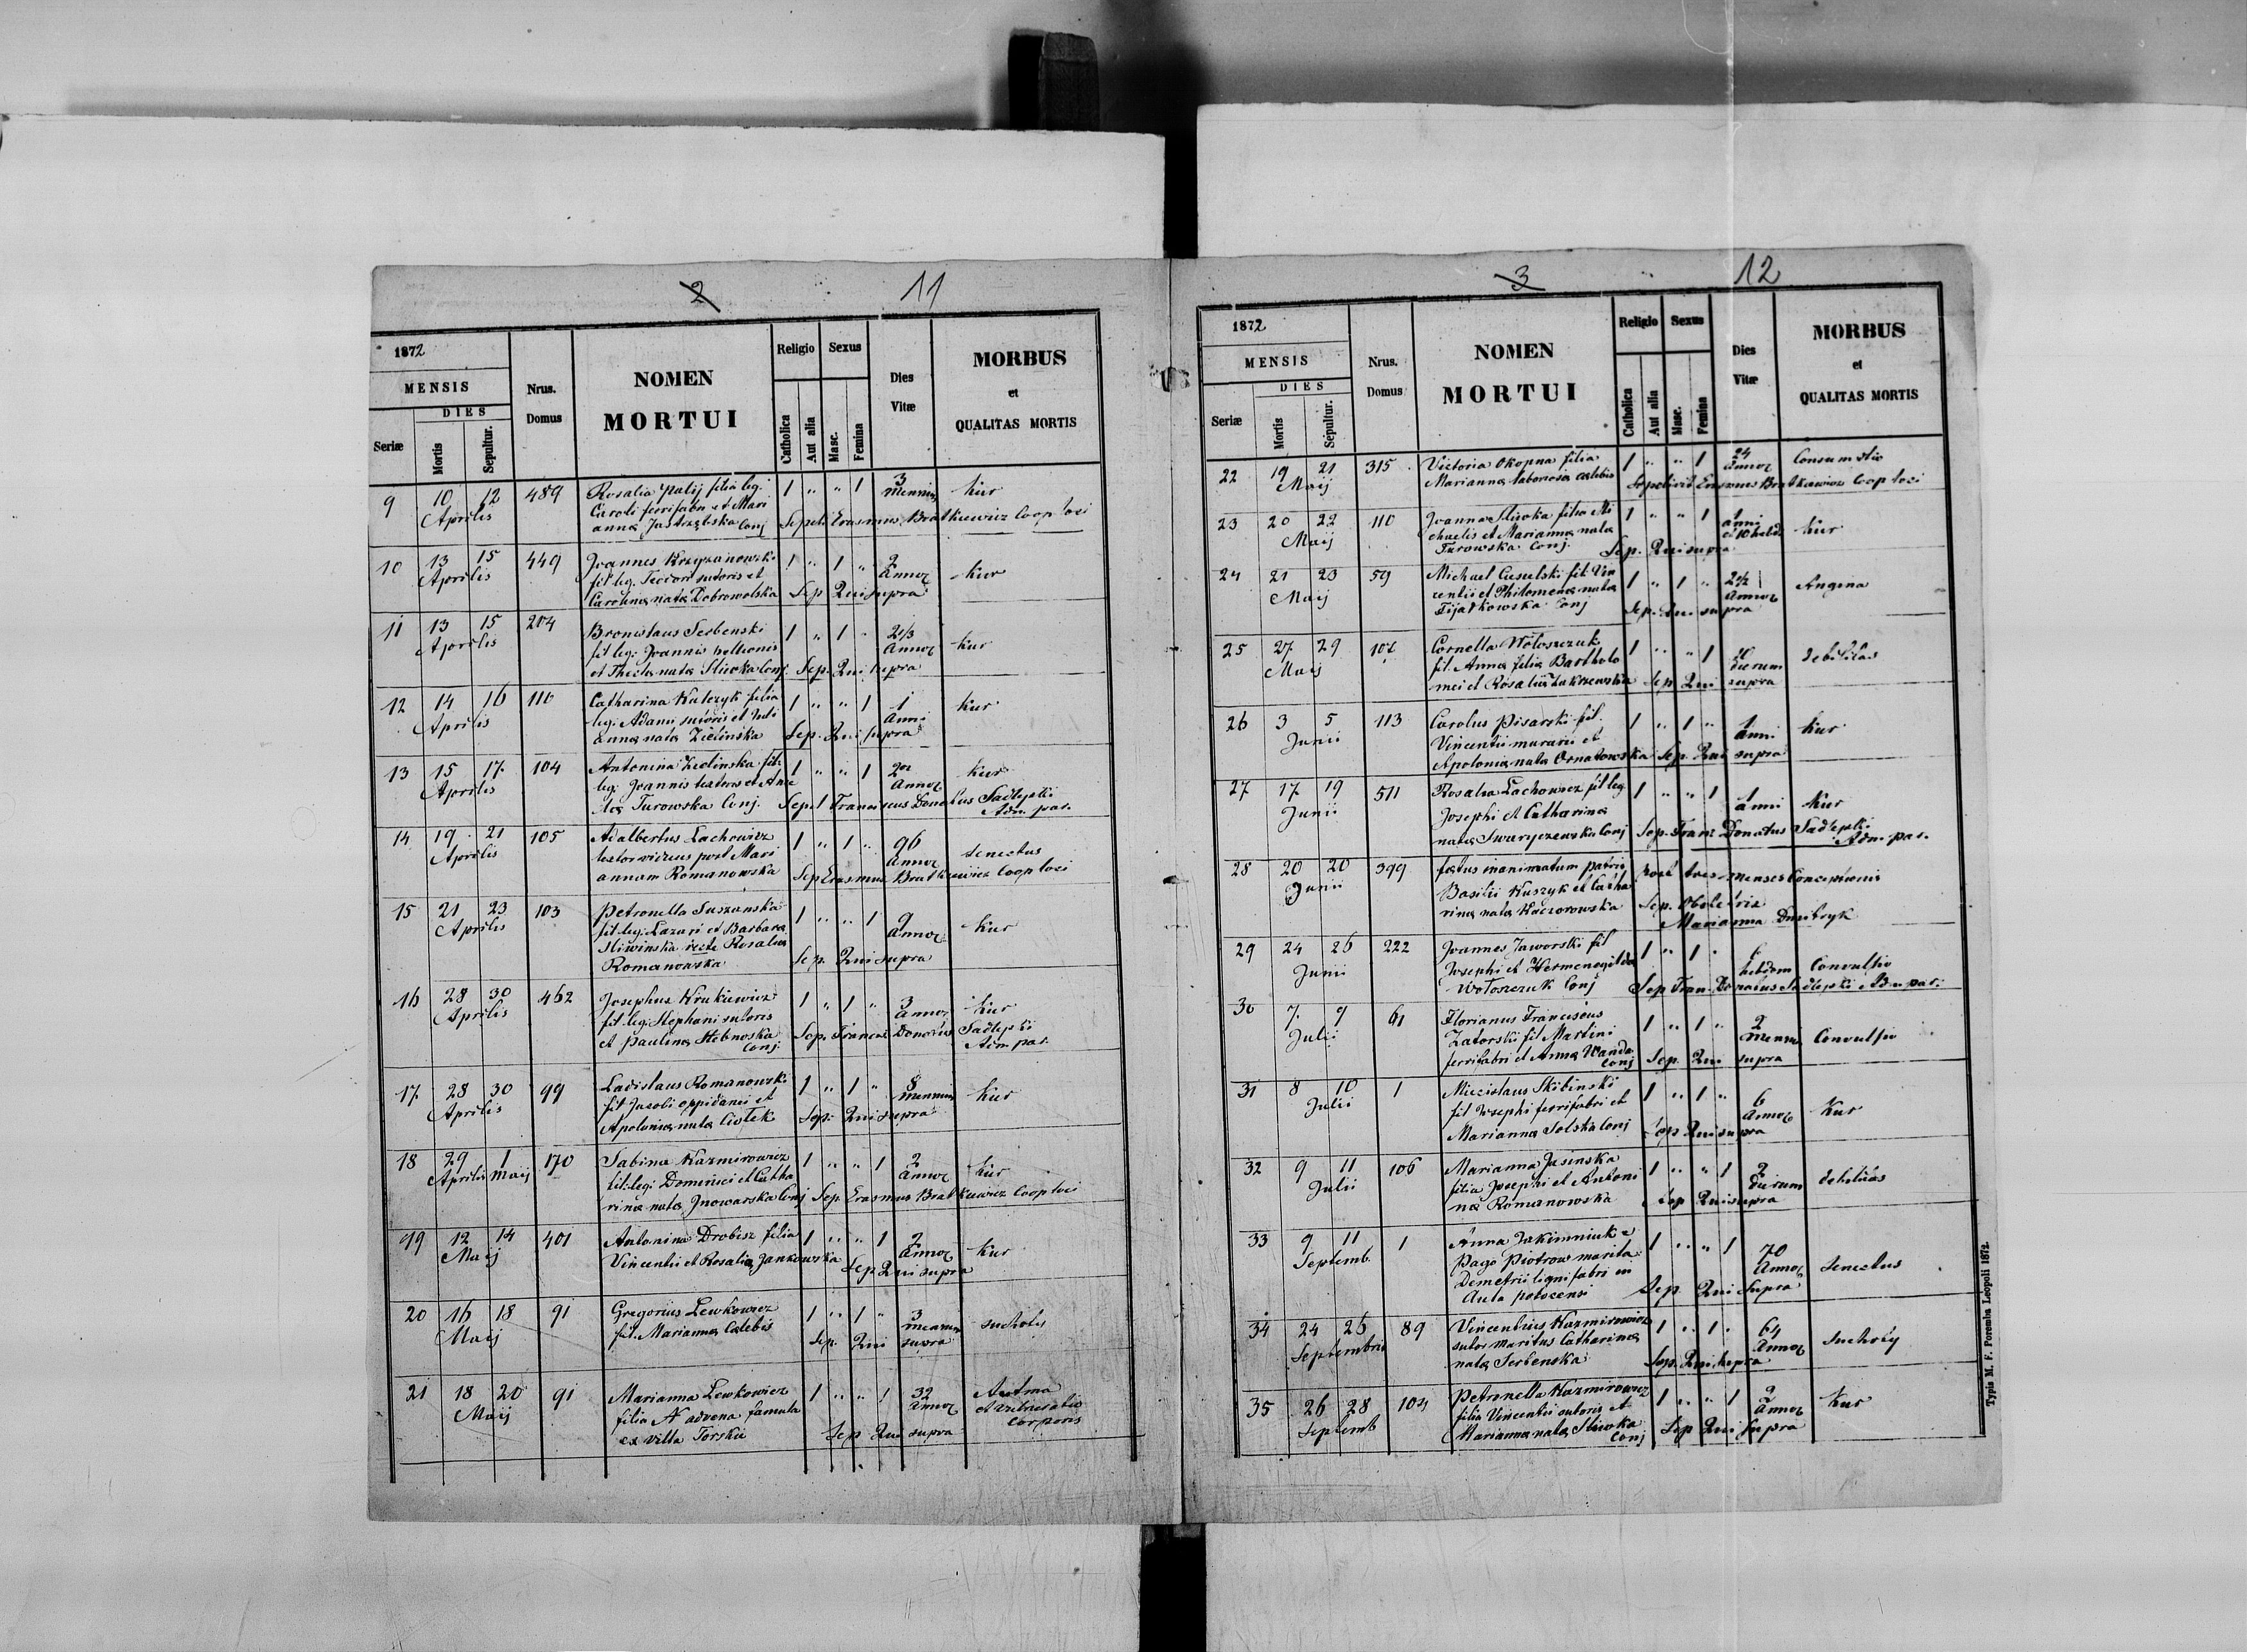 2 11
1872
MENSIS
DIES
Seriæ Mortis Sepultur.
Nrus. Domus
NOMEN
MORTUI
Religio Sexus
Catholica Aut alia Masc. Femina
Dies Vitæ
MORBUS
et
QUALITAS MORTIS
9 10 12 489 Rosalia Palij filia leg. 1 " " 1 3 Kur
Aprilis Caroli ferrifabri et Mari
anna Jastrzębska Conj Sepel. Erasmus Bratkiewicz Coop loci
10 13 15 449 Joannes Krzyżanowski 1 " 1 " 2 Kur
Aprilis fil leg. Teodori sutoris et Annor
Carolina nata Dobrowolska Sep Qui supra
11 13 15 204 Bronislaus Serbenski 1 " 1 " 2 1/3 Kur
Aprilis fil leg. Joannis pellionis Annor
et Thecla nata Sliwka Conj. Sep. Qui supra
12 14 16 110 Catharina Kulczyk filia 1 " " 1 1 Kur
Aprilis leg. Adami sutoris et Juli Anni
anna nata Zielinska Sep. Qui supra
13 15 17 104 Antonina Zielinska fil. 1 " " 1 Kur
Aprilis leg. Joannis textoris et Annor
Turowska Conj. Sepel Franciscus Donatus Sadlejski
Adm. par.
14 19 21 105 Adalbertus Lachowicz 1 " 1 " 96 senectus
Aprilis textor viduus post Mari Annor
annam Romanowska Sep Erasmus Bratkiewicz Coop loci
15 21 23 103 Petronella Suszanska 1 " " 1 Kur
Aprilis fil leg. Lazari et Barbara Annor
Sliwinska recte Rosalia
Romanowska Sep. Qui supra
16 28 30 462 Josephus Krukiewicz 1 " 1 " 3 Kur
Aprilis fil leg. Stephani sutoris Annor
et Paulina Stebnoska Sep. Francis Donatus Sadlejski
Conj. Adm par.
17 28 30 99 Ladislaus Romanowski 1 " 1 " 8 Kur
Aprilis fil Jacobi oppidanei et
Apolonia nata Ciołek Sep. Qui supra
18 29 1 170 Sabina Kazmirowicz 1 " " 1 2 Kur
Aprilis Maij fil: leg: Dominici et Catha Annor
rina nata Jnowarska Conj Sep. Erasmus Bratkiewicz Coop loci
19 12 14 401 Antonina Drobisz filia 1 " " 1 2 Kur
Maij Vincentii et Rosalia Jankowska Annor
Sep Qui supra
20 16 18 91 Gregorius Lewkowicz 1 " 1 " 3 suchoty
Maij fil. Marianna Celebis
Sep. Qui supra
21 18 20 91 Marianna Lewkowicz 1 " " 1 32 Astma
Maij filia N advena famula Annor
ex villa Torskie Sep Qui supra corporis
3 12
1872
MENSIS
DIES
Seriæ Mortis Sepultur.
Nrus. Domus
NOMEN
MORTUI
Religio Sexus
Catholica Aut alia Masc. Femina
Dies Vitæ
MORBUS
et
QUALITAS MORTIS
22 19 21 315 Victoria Okopna filia 1 " " 1 24
Maij Marianna laboriosa celebis Annor
Sepelivit Erasmus Bratkiewicz Coop loci
23 20 22 110 Joanna Sliwka filia Mi 1 " " 1 1 Kur
Maij chaelis et Marianna nata anni et 10 hebd.
Turowska Conj. Sep. Qui supra
24 21 23 59 Michael fil. Vin 1 " 1 " 2 1/2 Angina
Maij centii et Philomena nata Annor
Fijałkowska Conj Sep. Qui supra
25 27 29 Cornella Wołoszczuk 1 " " 1 debilitas
Maij fil. Anna filia Bartholo dierum
mei et Rosalia Zakrzewska Sep Qui supra
26 3 5 113 Carolus Pisarski fil. 1 " 1 " 1 Kur
Junii Vincentii murarii et anni
Apolonia nata Ornatowska Sep. Qui supra
27 17 19 511 Rosalia Lachowicz fil leg. 1 " " 1 1 Kur
Junii Josephi et Catharina anni
nata Swaryczewska Conj Sep. Franc Donatus Sadlejski
Adm. par.
28 20 20 399 fœtus inanimatum patris post tres menses Conceptionis
Junii Basilii Kuszyk et Catha
rina nata Kaczorowska Sep. Obstetrix
Marianna Dmibryk
29 24 26 222 Joannes Jaworski fil 1 " 1 " Convulsio
Junii Josephi et Hermenegilda hebdom
Wołoszczuk Conj Sep Fran. Donatus Sadlejski
30 7 9 61 Florianus Franciscus 1 " 1 " 2 Convulsio
Julii Zatorski fil Martini
ferrifabri et Anna Wanda Sep. Qui supra
Conj
31 8 10 1 Miecislaus Skibinski 1 " 1 " 6 Kur
Julii fil Josephi ferrifabri et Annor
Marianna Solska Conj Sep Qui supra
32 9 11 106 Marianna Jasinska 1 " " 1 2 debilitas
Julii filia Josephi et Antoni dierum
na Romanowska Sep Qui supra
33 9 11 1 Anna Jakimniuk e 1 " " 1 70 senectus
Septemb. pago Piotrow marita Annor
Demetrii lignifabri in
Aula potocensi Sep. Qui supra
34 24 26 89 Vincentius Kazmirowicz 1 " 1 " 64 suchoty
Septembris sutor maritus Catharina Annor
nata Serbenska Sep. Qui supra
35 26 28 104 Petronella Kazmirowicz 1 " " 1 2 Kur
Septemb filia Vincentii sutoris et Annor
Marianna nata Sliwka Sep Qui supra
Conj
Typis M. F. Poremba Leopoli 1872.